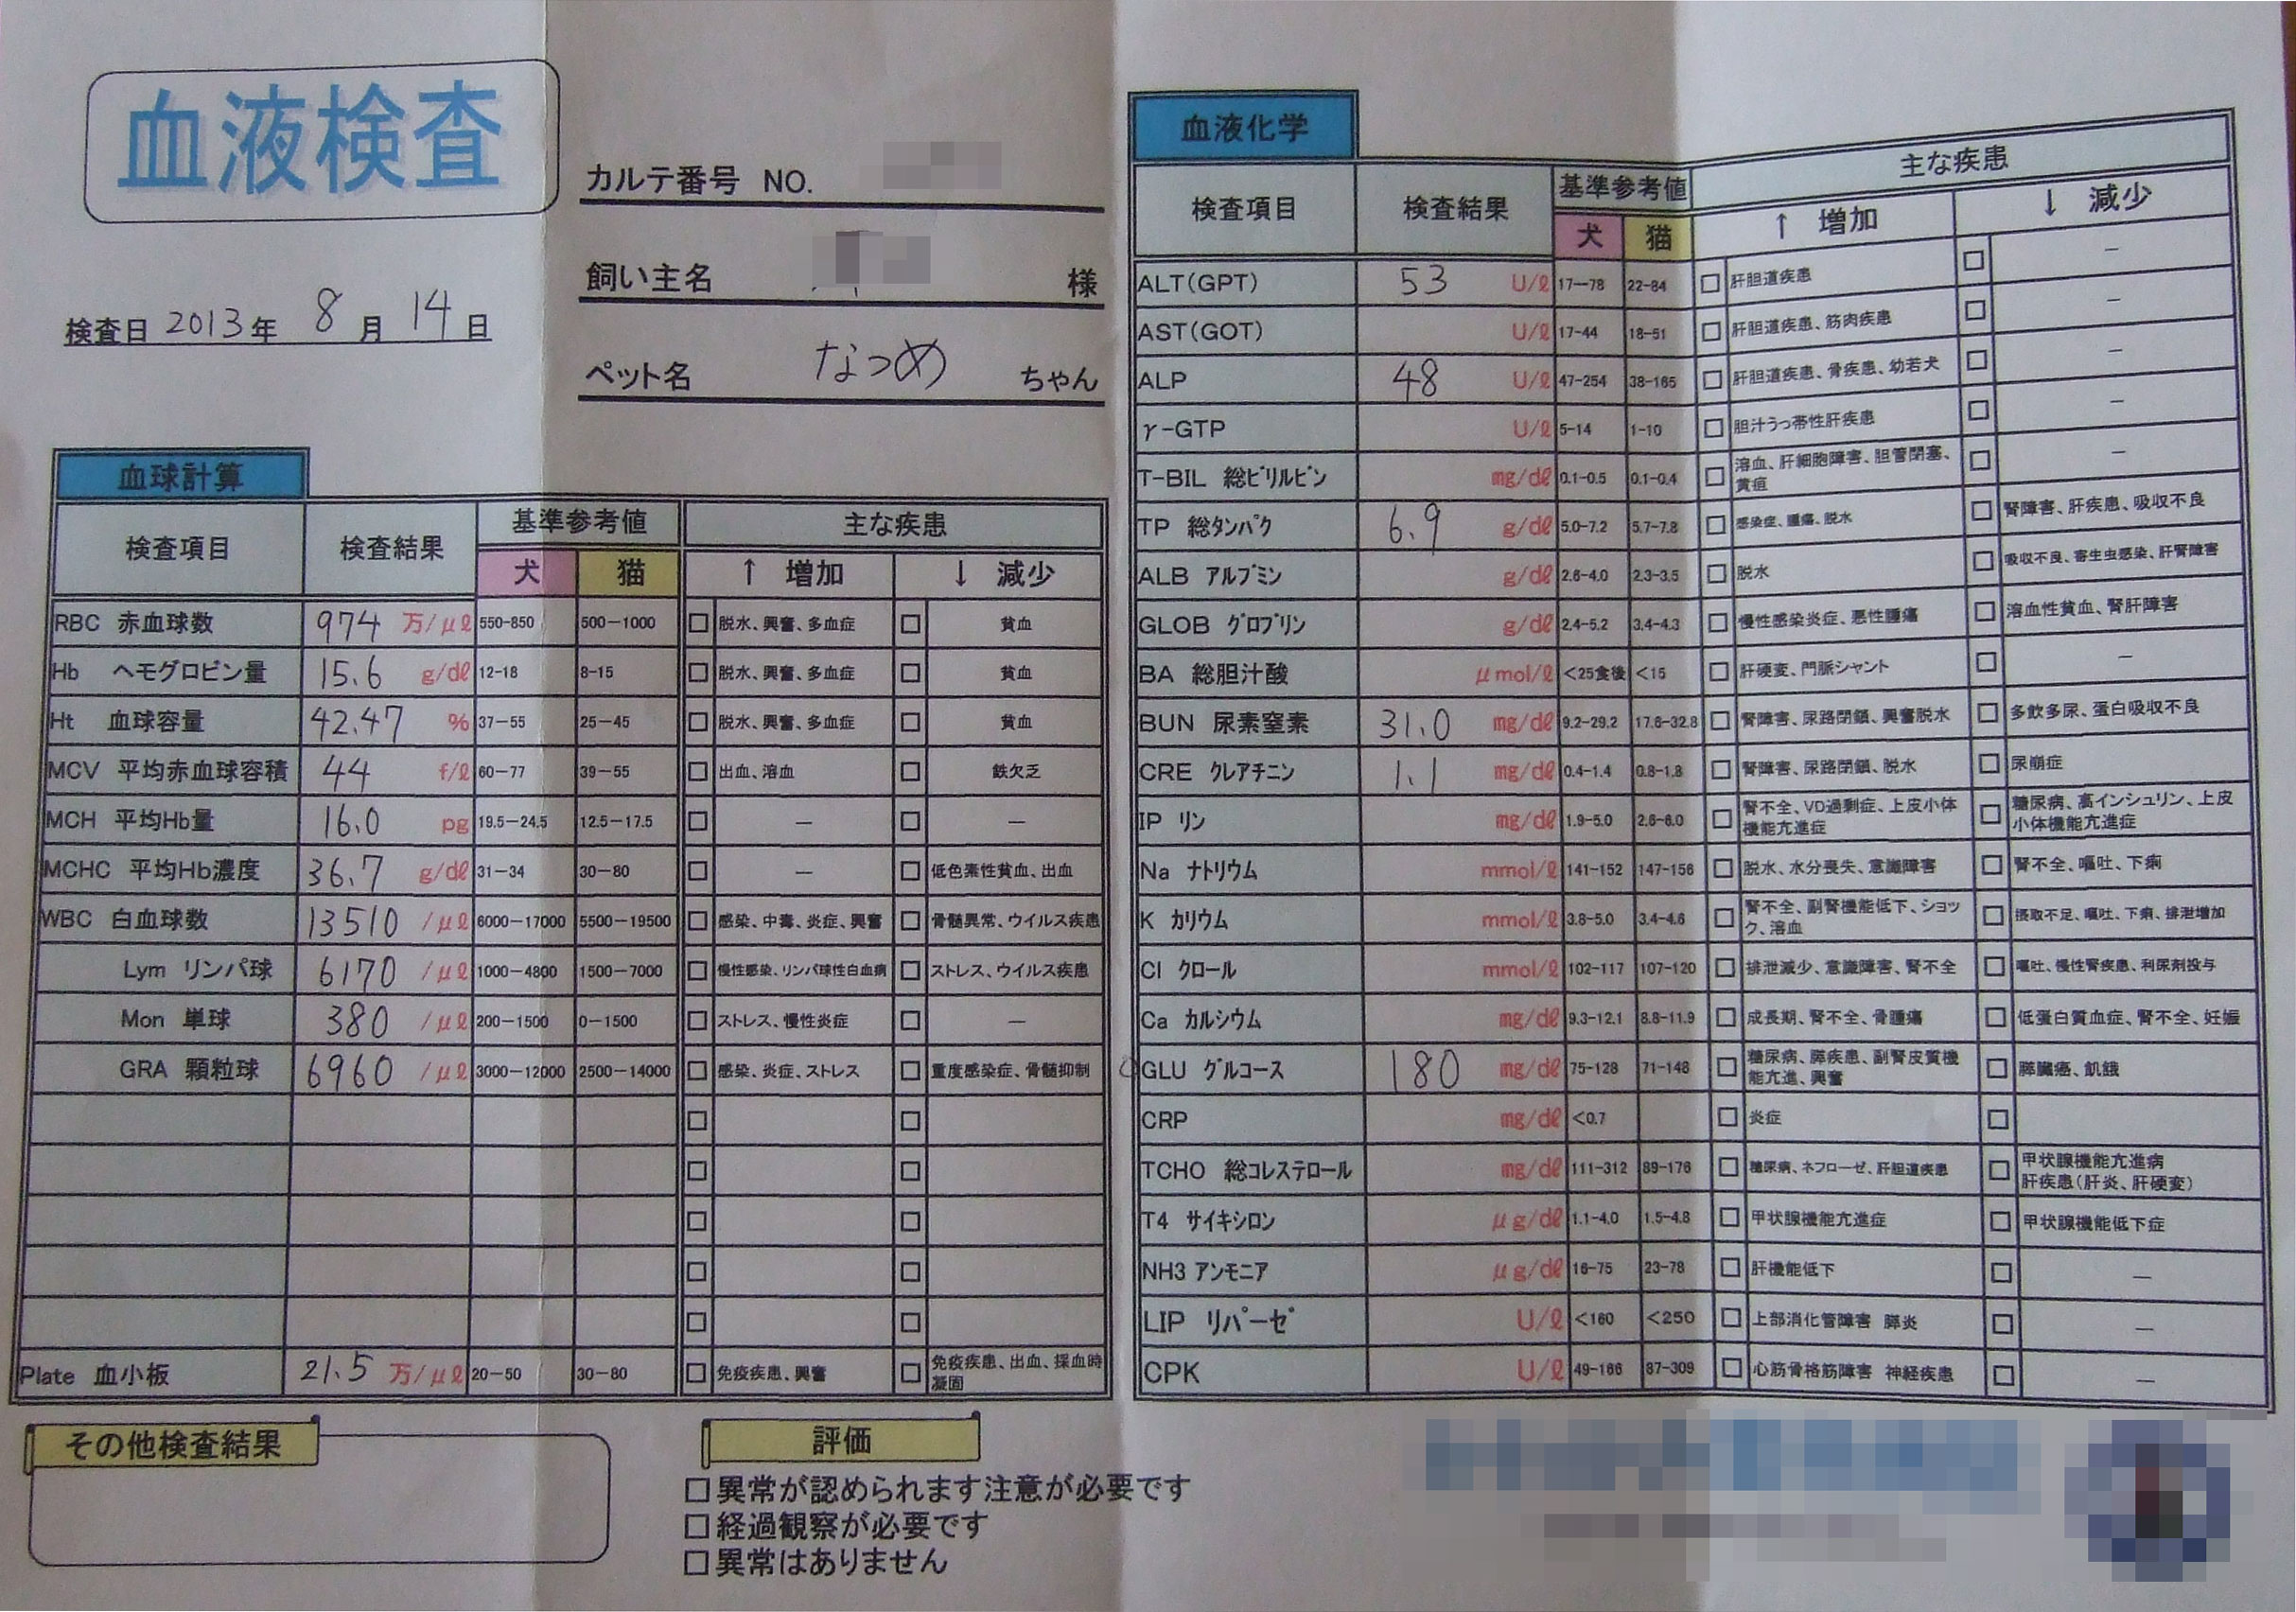 血液検査
カルテ番号 NO.
飼い主名 様
検査日 2013年 8月 14日
ペット名 なつめ ちゃん
血球計算
検査項目 検査結果 基準参考値 主な疾患
犬 猫 ↑ 増加 ↓ 減少
RBC 赤血球数 974 万/μℓ 550-850 500-1000 □ 脱水、興奮、多血症 □ 貧血
Hb ヘモグロビン量 15.6 g/dℓ 12-18 8-15 □ 脱水、興奮、多血症 □ 貧血
Ht 血球容量 42.47 % 37-55 25-45 □ 脱水、興奮、多血症 □ 貧血
MCV 平均赤血球容積 44 f/ℓ 60-77 39-55 □ 出血、溶血 □ 鉄欠乏
MCH 平均Hb量 16.0 pg 19.5-24.5 12.5-17.5 □ - □ -
MCHC 平均Hb濃度 36.7 g/dℓ 31-34 30-80 □ - □ 低色素性貧血、出血
WBC 白血球数 13510 /μℓ 6000-17000 5500-19500 □ 感染、中毒、炎症、興奮 □ 骨髄異常、ウイルス疾患
Lym リンパ球 6170 /μℓ 1000-4800 1500-7000 □ 慢性感染、リンパ球性白血病 □ ストレス、ウイルス疾患
Mon 単球 380 /μℓ 200-1500 0-1500 □ ストレス、慢性炎症 □ -
GRA 顆粒球 6960 /μℓ 3000-12000 2500-14000 □ 感染、炎症、ストレス □ 重度感染症、骨髄抑制
□ □
□ □
□ □
□ □
□ □
Plate 血小板 21.5 万/μℓ 20-50 30-80 □ 免疫疾患、興奮 □ 免疫疾患、出血、採血時凝固
その他検査結果
評価
□ 異常が認められます注意が必要です
□ 経過観察が必要です
□ 異常はありません
血液化学
検査項目 検査結果 基準参考値 主な疾患
犬 猫 ↑ 増加 ↓ 減少
ALT(GPT) 53 U/ℓ 17-78 22-84 □ 肝胆道疾患 □ -
AST(GOT) U/ℓ 17-44 18-51 □ 肝胆道疾患、筋肉疾患 □ -
ALP 48 U/ℓ 47-254 38-165 □ 肝胆道疾患、骨疾患、幼若犬 □ -
γ-GTP U/ℓ 5-14 1-10 □ 胆汁うっ帯性肝疾患 □ -
T-BIL 総ビリルビン mg/dℓ 0.1-0.5 0.1-0.4 □ 溶血、肝細胞障害、胆管閉塞、黄疸 □ -
TP 総タンパク 6.9 g/dℓ 5.0-7.2 5.7-7.8 □ 感染症、腫瘍、脱水 □ 腎障害、肝疾患、吸収不良
ALB アルブミン g/dℓ 2.6-4.0 2.3-3.5 □ 脱水 □ 吸収不良、寄生虫感染、肝腎障害
GLOB グロブリン g/dℓ 2.4-5.2 3.4-4.3 □ 慢性感染炎症、悪性腫瘍 □ 溶血性貧血、腎肝障害
BA 総胆汁酸 μmol/ℓ <25食後 <15 □ 肝硬変、門脈シャント □ -
BUN 尿素窒素 31.0 mg/dℓ 9.2-29.2 17.6-32.8 □ 腎障害、尿路閉鎖、興奮脱水 □ 多飲多尿、蛋白吸収不良
CRE クレアチニン 1.1 mg/dℓ 0.4-1.4 0.8-1.8 □ 腎障害、尿路閉鎖、脱水 □ 尿崩症
IP リン mg/dℓ 1.9-5.0 2.6-6.0 □ 腎不全、VD過剰症、上皮小体機能亢進症 □ 糖尿病、高インシュリン、上皮小体機能亢進症
Na ナトリウム mmol/ℓ 141-152 147-156 □ 脱水、水分喪失、意識障害 □ 腎不全、嘔吐、下痢
K カリウム mmol/ℓ 3.8-5.0 3.4-4.6 □ 腎不全、副腎機能低下、ショック、溶血 □ 摂取不足、嘔吐、下痢、排泄増加
Cl クロール mmol/ℓ 102-117 107-120 □ 排泄減少、意識障害、腎不全 □ 嘔吐、慢性腎疾患、利尿剤投与
Ca カルシウム mg/dℓ 9.3-12.1 8.8-11.9 □ 成長期、腎不全、骨腫瘍 □ 低蛋白質血症、腎不全、妊娠
GLU グルコース 180 mg/dℓ 75-128 71-148 □ 糖尿病、膵疾患、副腎皮質機能亢進、興奮 □ 膵臓癌、飢餓
CRP mg/dℓ <0.7 □ 炎症 □
TCHO 総コレステロール mg/dℓ 111-312 89-176 □ 糖尿病、ネフローゼ、肝胆道疾患 □ 甲状腺機能亢進病 肝疾患(肝炎、肝硬変)
T4 サイキシロン μg/dℓ 1.1-4.0 1.5-4.8 □ 甲状腺機能亢進症 □ 甲状腺機能低下症
NH3 アンモニア μg/dℓ 16-75 23-78 □ 肝機能低下 □ -
LIP リパーゼ U/ℓ <160 <250 □ 上部消化管障害 膵炎 □ -
CPK U/ℓ 49-166 87-309 □ 心筋骨格筋障害 神経疾患 □ -